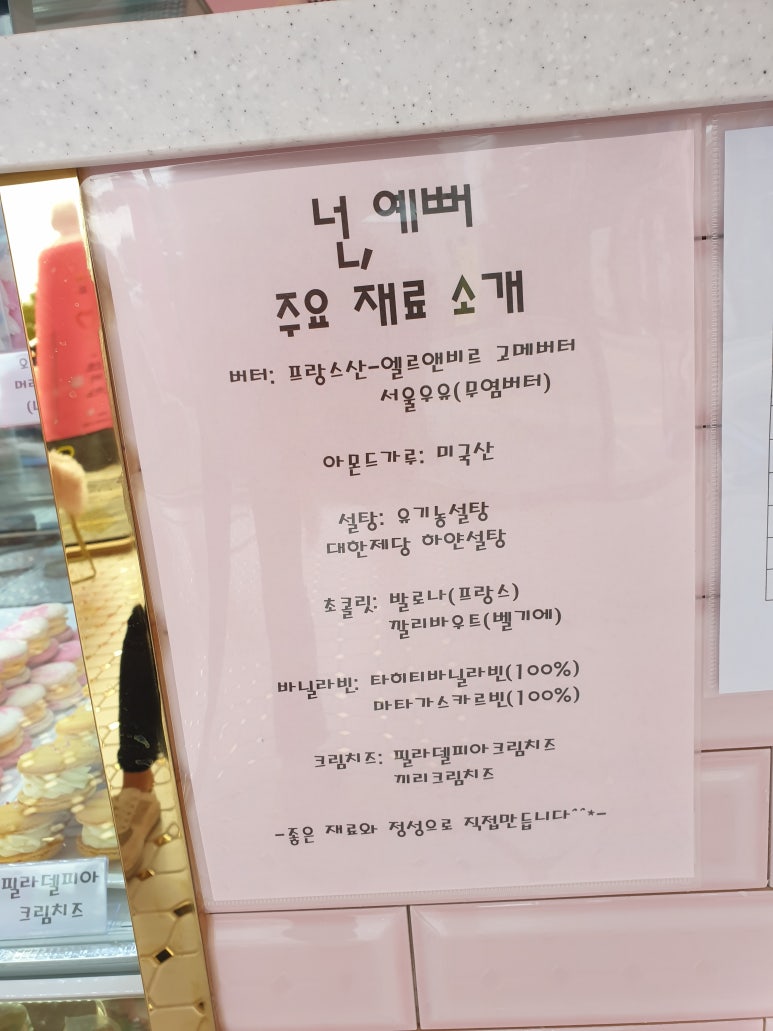 넌, 예뻐
주요 재료 소개
버터: 프랑스산-엘르앤비르 고메버터
서울우유(무염버터)
아몬드가루: 미국산
설탕: 유기농설탕
대한제당 하얀설탕
초콜릿: 발로나(프랑스)
깔리바우트(벨기에)
바닐라빈: 타히티바닐라빈(100%)
마타가스카르빈(100%)
크림치즈: 필라델피아크림치즈
끼리크림치즈
-좋은 재료와 정성으로 직접만듭니다^^*-
필라델피아
크림치즈